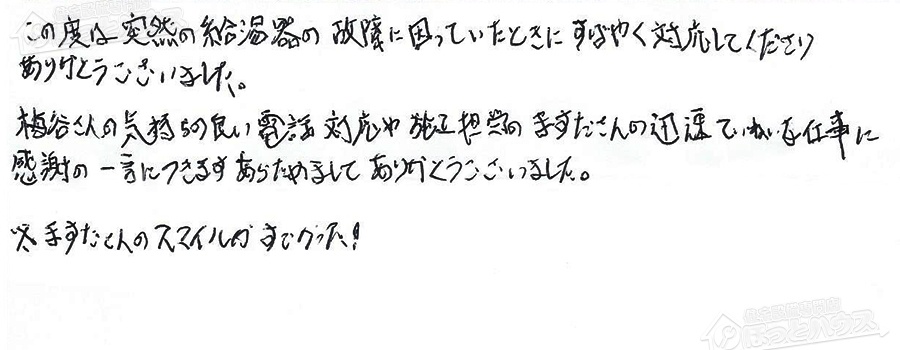 この度は突然の給湯器の故障に困っていたときにすばやく対応してくださり
ありがとうございました。
梅谷さんの気持ちの良い電話対応や施工担当の ますださんの迅速ていねいな仕事に
感謝の一言につきます あらためまして ありがとうございました。
※ ますださんのスマイルがすてきでした!
住宅設備専門店
ほっとハウス